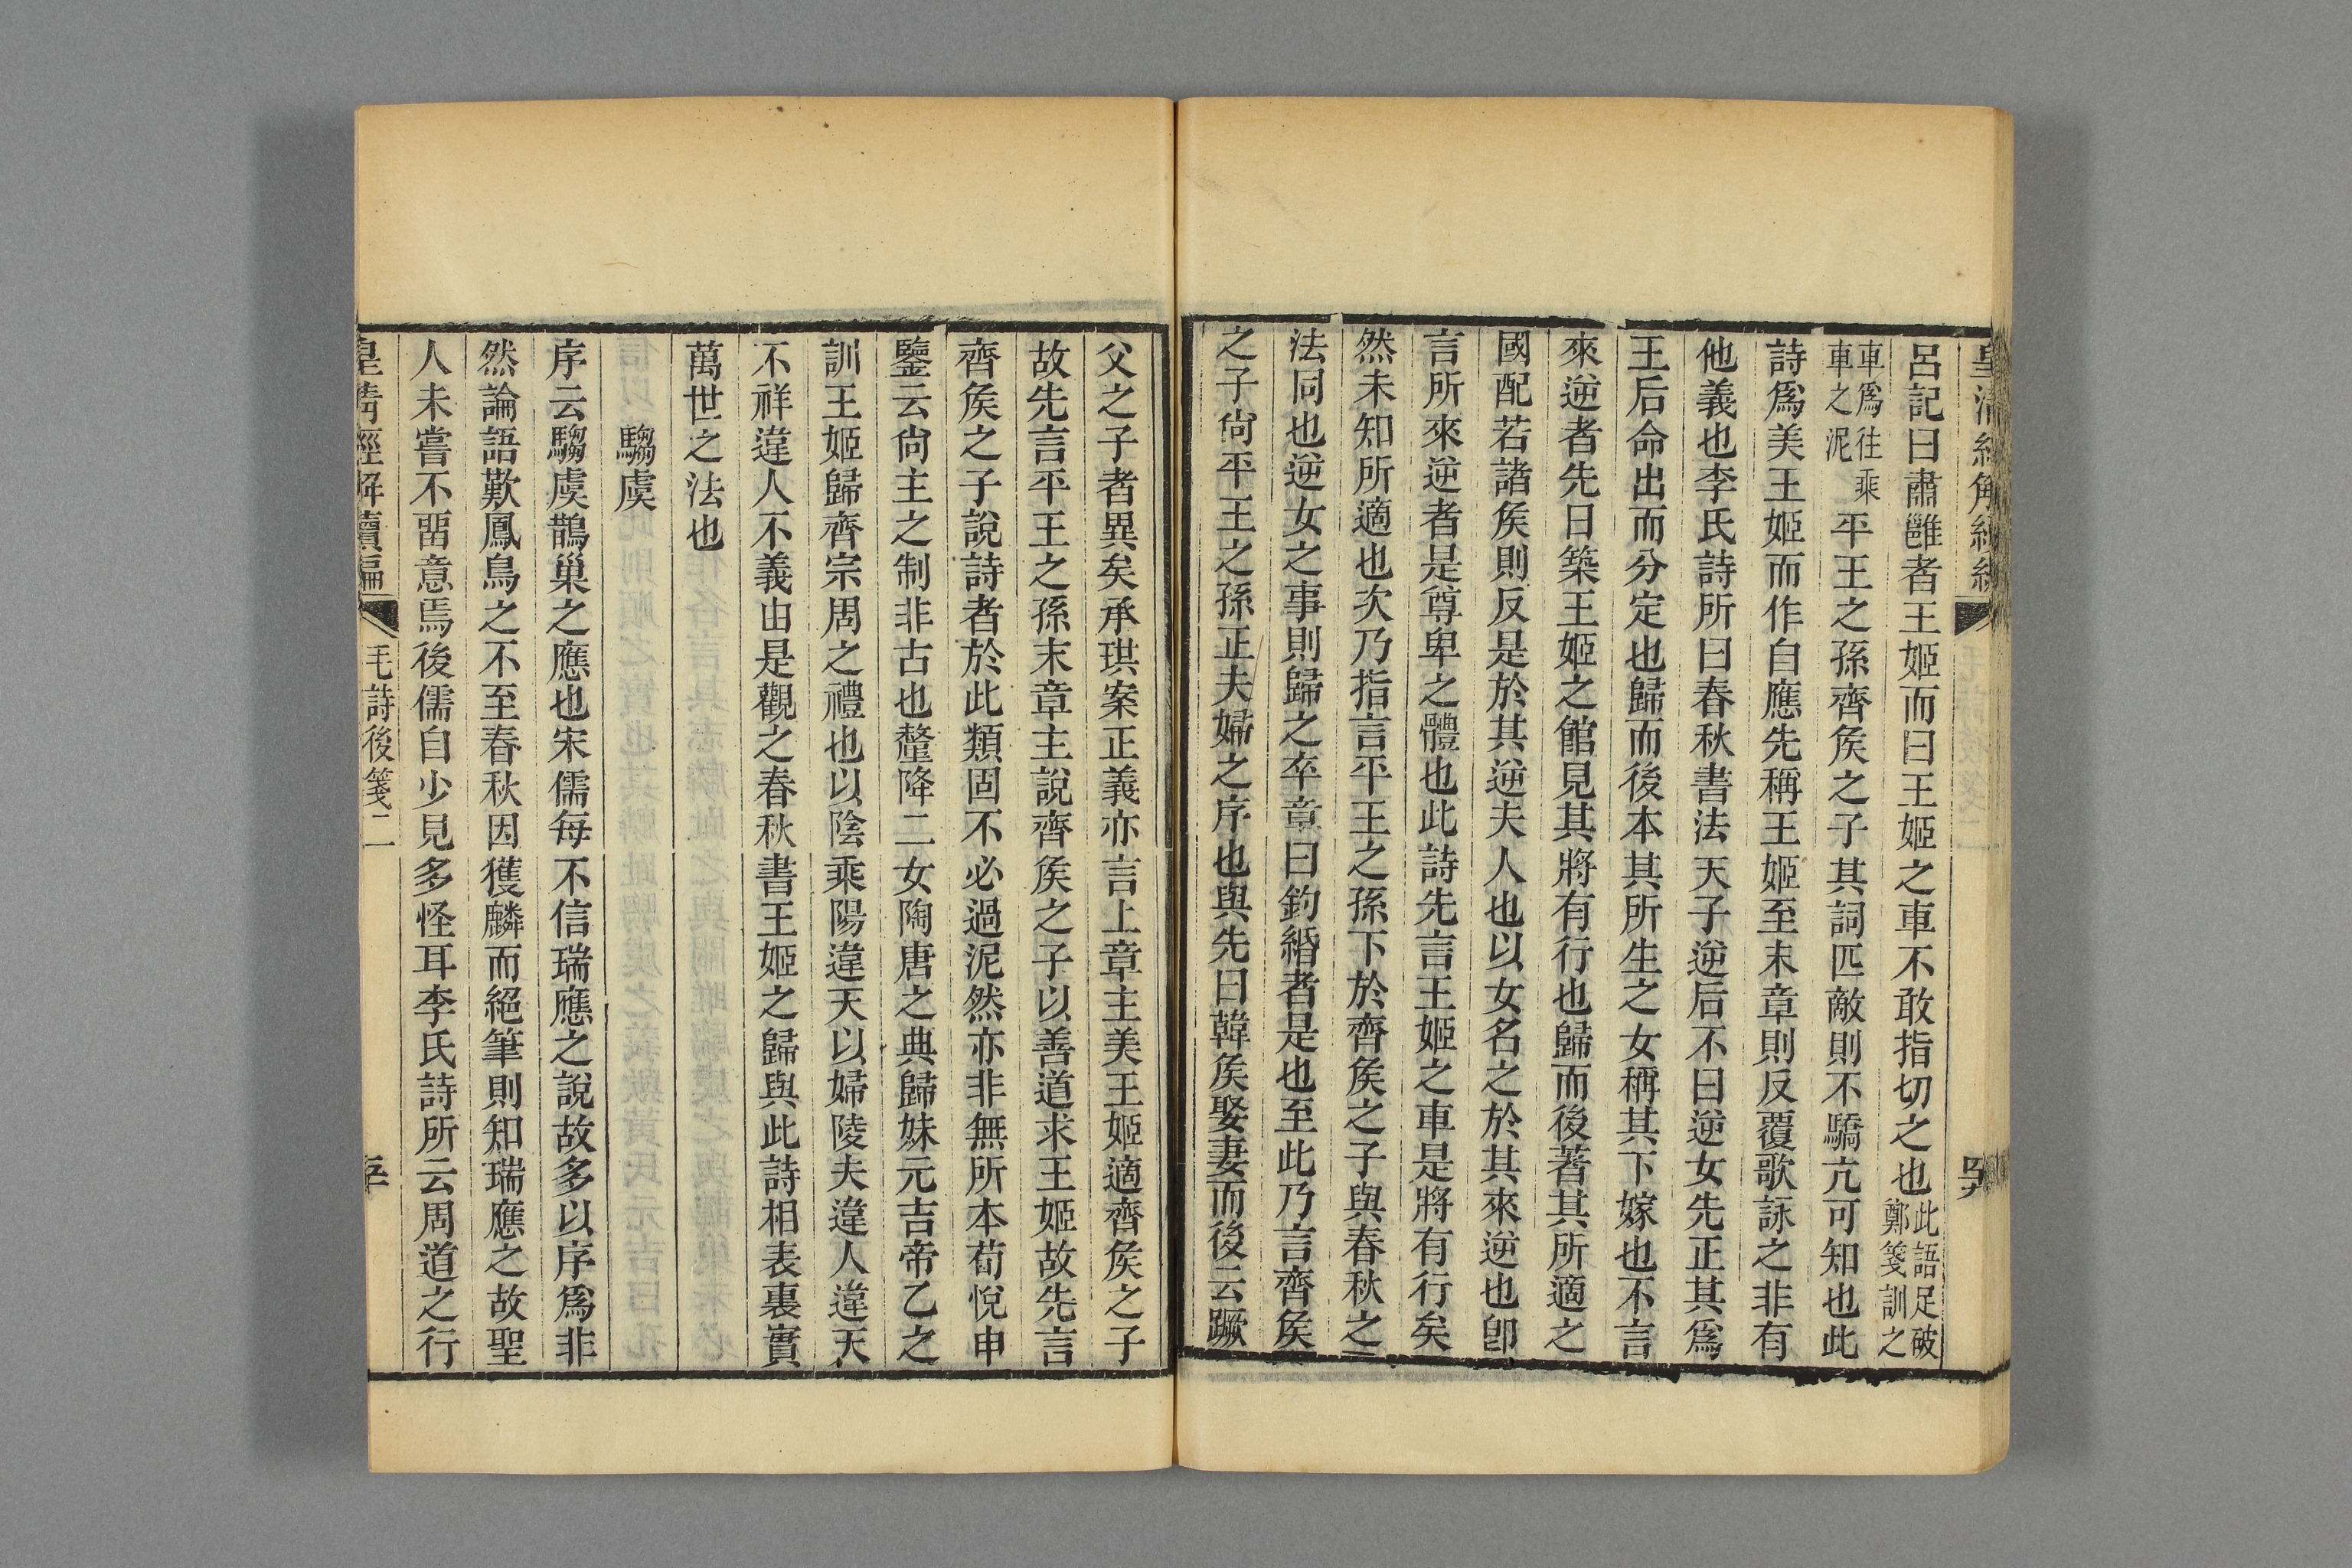 呂記曰肅雝者王姬而曰王姬之車不敢指切之也此語足破鄭箋訓之
車為往乘車之泥平王之孫齊矦之子其詞匹敵則不驕亢可知也此
詩爲美王姬而作自應先稱王姬至末章則反覆歌詠之非有
他義也李氏詩所曰春秋書法天子逆后不曰逆女先正其爲
王后命出而分定也歸而後本其所生之女稱其下嫁也不言
來逆者先日築王姬之館見其將有行也歸而後著其所適之
國配若諸矦則反是於其逆夫人也以女名之於其來逆也卽
言所來逆者是尊卑之體也此詩先言王姬之車是將有行矣
然未知所適也次乃指言平王之孫下於齊矦之子與春秋之
法同也逆女之事則歸之卒章曰釣緡者是也至此乃言齊矦
之子尙平王之孫正夫婦之序也與先曰韓矦娶妻而後云蹶
父之子者異矣承珙案正義亦言上章主美王姬適齊矦之子
故先言平王之孫末章主說齊矦之子以善道求王姬故先言
齊矦之子說詩者於此類固不必過泥然亦非無所本荀悅申
鑒云尙主之制非古也釐降二女陶唐之典歸妹元吉帝乙之
訓王姬歸齊宗周之禮也以陰乘陽違天以婦陵夫違人違天
不祥違人不義由是觀之春秋書王姬之歸與此詩相表裏實
萬世之法也
騶虞
序云騶虞鵲巢之應也宋儒每不信瑞應之說故多以序爲非
然論語歎鳳鳥之不至春秋因獲麟而絕筆則知瑞應之故聖
人未嘗不畱意焉後儒自少見多怪耳李氏詩所云周道之行
皇清經解續編 毛詩後箋二